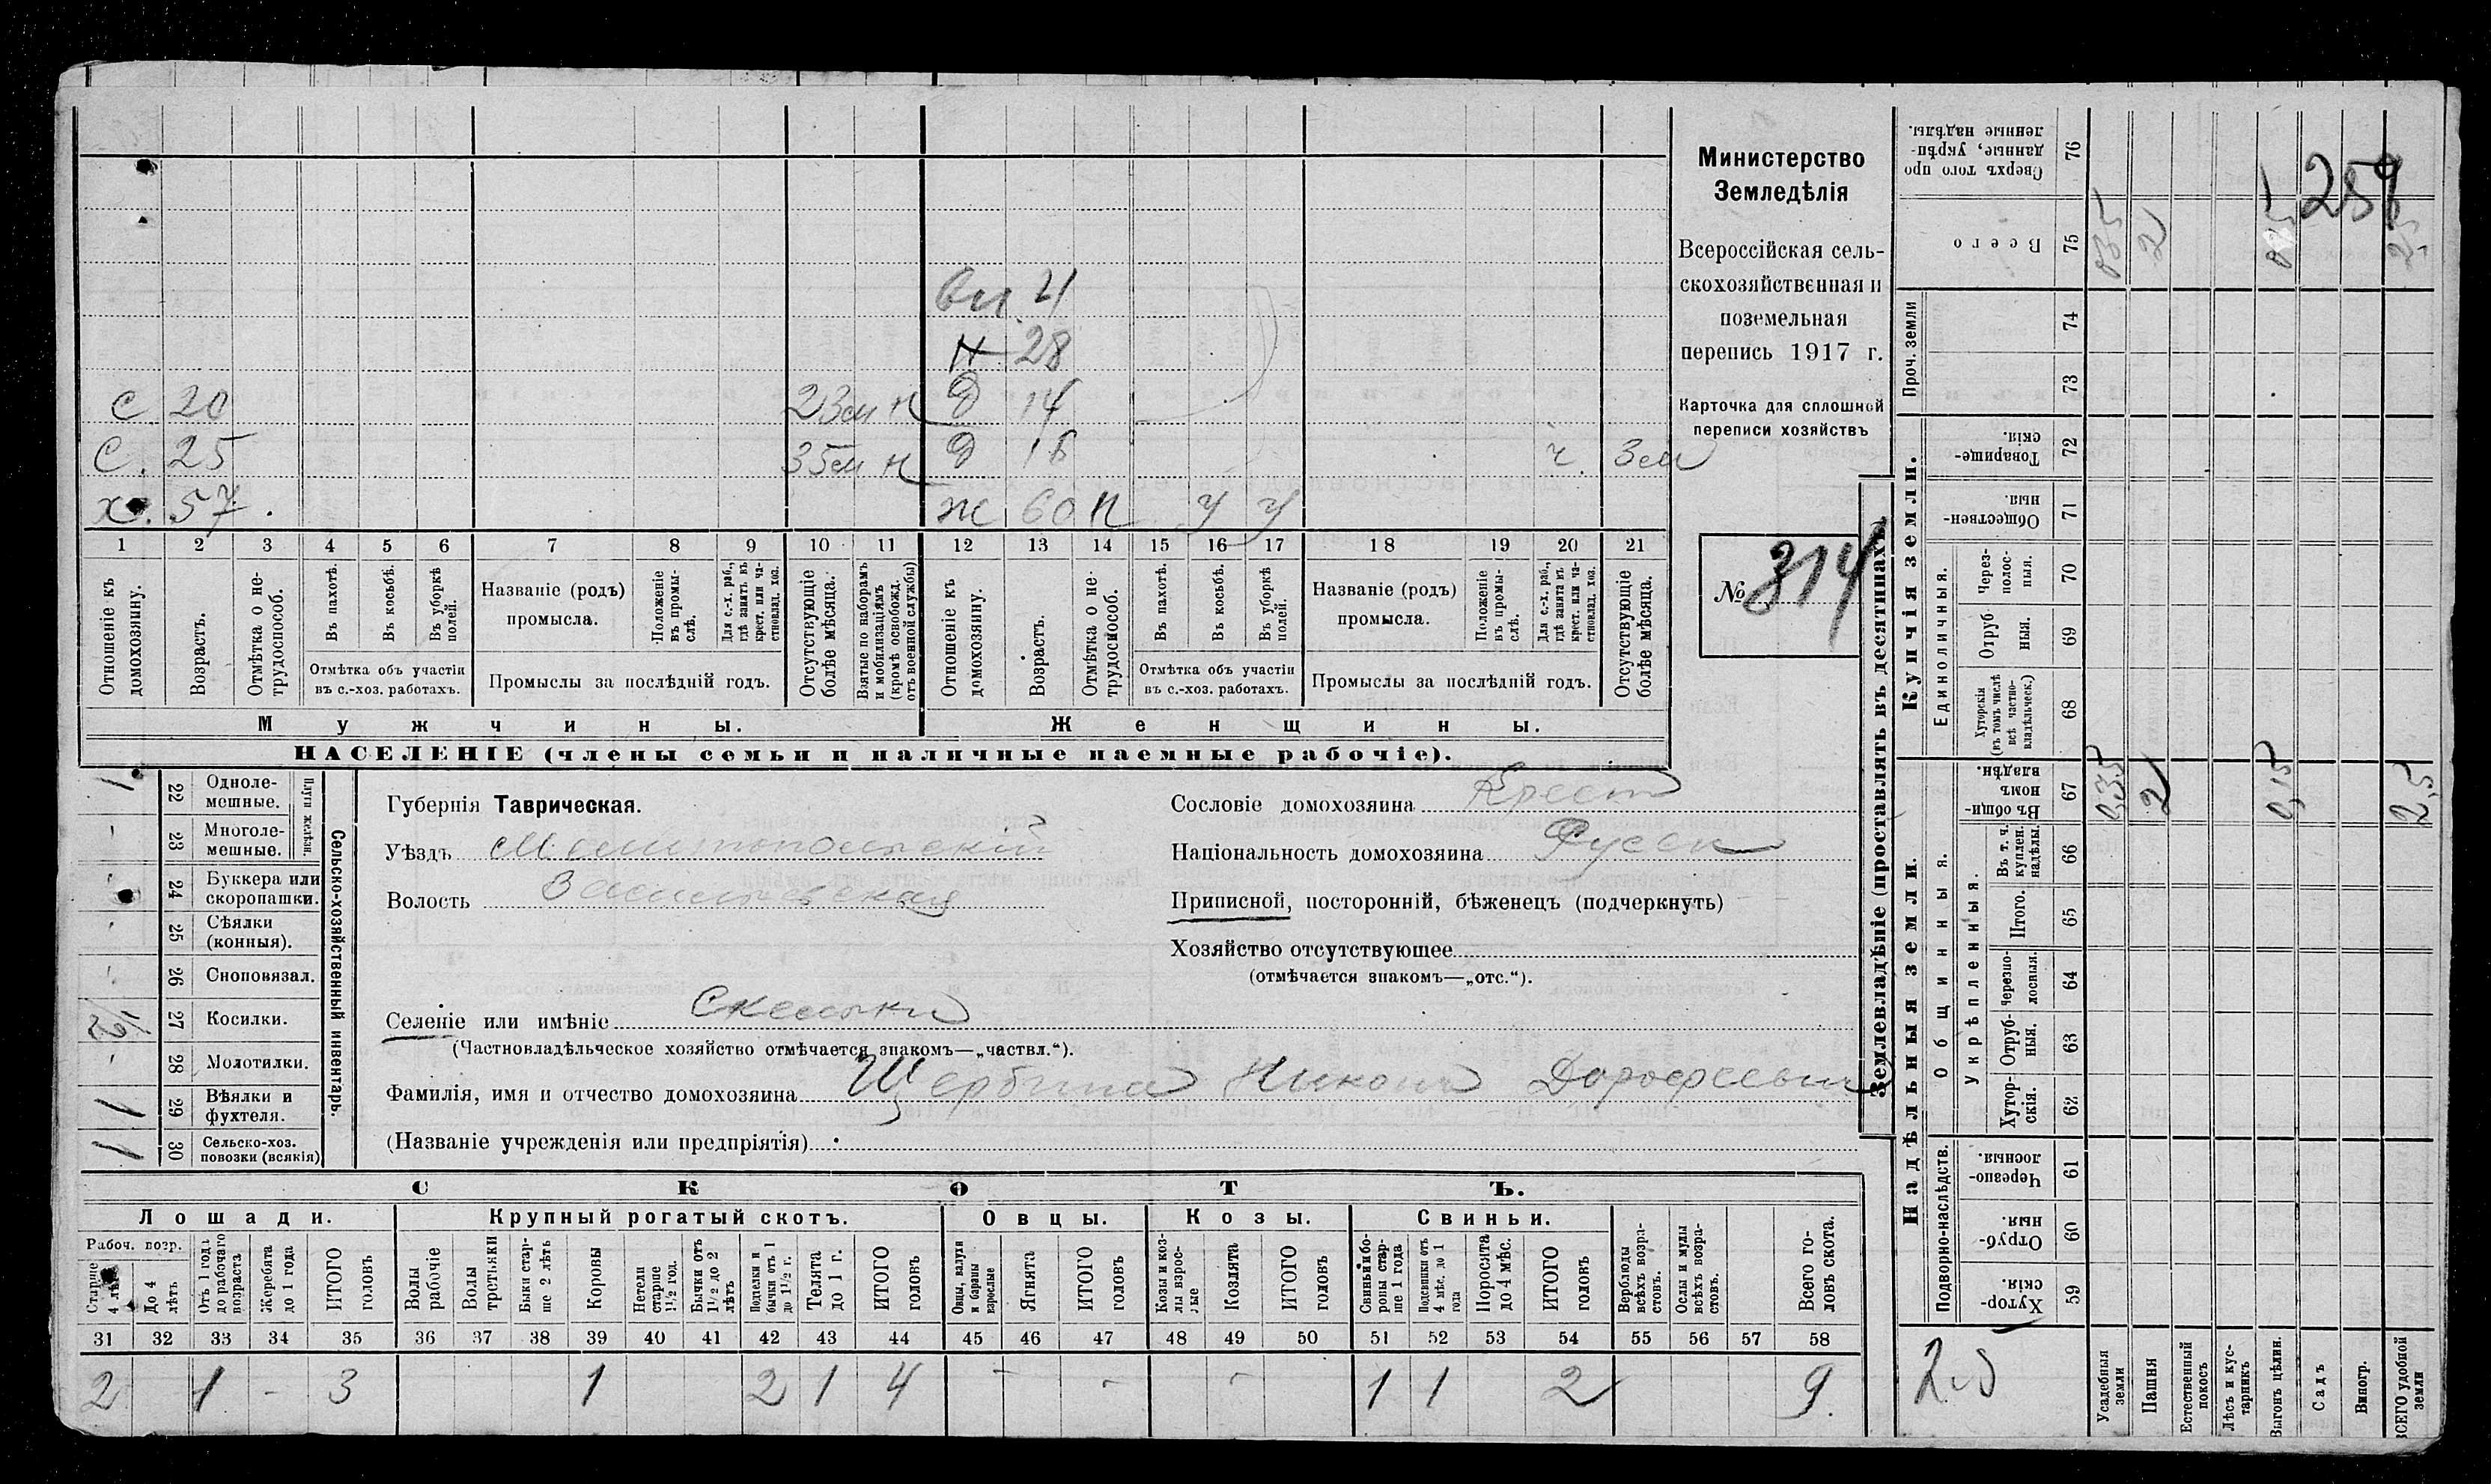 Министерство
Земледѣлія
Всероссійская сель-
скохозяйственная и
поземельная
перепись 1917 г.
Карточка для сплошной
переписи хозяйствъ
№ 314
257
вн. 4
Н 28
С 20 23 см н Д 14
С. 25 35 см н Д 16 ч. 3 см
х. 57. ж 60 п У У
1 2 3 4 5 6 7 8 9 10 11 12 13 14 15 16 17 18 19 20 21
Отношеніе къ домохозяину.
Возрастъ.
Отмѣтка о не-трудоспособ.
Въ пахотѣ.
Въ косьбѣ.
Въ уборкѣ полей.
Отмѣтка объ участіи
въ с.-хоз. работахъ.
Названіе (родъ)
промысла.
Положеніе въ промы-слѣ.
Для с.-х. раб., гдѣ занятъ въ крест. или ча-стновлад. хоз.
Промыслы за послѣдній годъ.
Отсутствующіе болѣе мѣсяца.
Взятые по наборамъ и мобилизаціямъ (кромѣ освобожд. отъ военной службы)
Отношеніе къ домохозяину.
Возрастъ.
Отмѣтка о не-трудоспособ.
Въ пахотѣ.
Въ косьбѣ.
Въ уборкѣ полей.
Отмѣтка объ участіи
въ с.-хоз. работахъ.
Названіе (родъ)
промысла.
Положеніе въ промы-слѣ.
Для с.-х. раб., гдѣ занята въ крест. или ча-стновлад. хоз.
Промыслы за послѣдній годъ.
Отсутствующіе болѣе мѣсяца.
Мужчины.
Женщины.
НАСЕЛЕНІЕ (члены семьи и наличные наемные рабочіе).
Сельско-хозяйственный инвентарь.
Плуги желѣзн.
1 22 Одноле-мешные.
- 23 Многоле-мешные.
- 24 Буккера или скоропашки.
- 25 Сѣялки (конныя).
- 26 Сноповязал.
1/2 27 Косилки.
- 28 Молотилки.
1 29 Вѣялки и фухтеля.
1 30 Сельско-хоз. повозки (всякія)
Губернія Таврическая.
Уѣздъ Мелитопольскій
Волость Васильевская
Селеніе или имѣніе Скельки
(Частновладѣльческое хозяйство отмѣчается знакомъ—„частвл.“).
Фамилія, имя и отчество домохозяина Щербина Никон Дорофеевич
(Названіе учрежденія или предпріятія)
Сословіе домохозяина Крест
Національность домохозяина Русск
Приписной, посторонній, бѣженецъ (подчеркнуть)
Хозяйство отсутствующее
(отмѣчается знакомъ—„отс.“).
СКОТЪ.
Лошади.
Крупный рогатый скотъ.
Овцы.
Козы.
Свиньи.
Рабоч. возр.
Старше 4 лѣтъ
До 4 лѣтъ
Отъ 1 года до рабочаго возраста
Жеребята до 1 года
ИТОГО головъ
Волы рабочіе
Волы третьяки
Быки стар-ше 2 лѣтъ
Коровы
Нетели старше 1½ год.
Бычки отъ 1½ до 2 лѣтъ
Подтелки и бычки отъ 1 до 1½ г.
Телята до 1 г.
ИТОГО головъ
Овцы, валухи и бараны взрослые
Ягнята
ИТОГО головъ
Козы и коз-лы взрос-лые
Козлята
ИТОГО головъ
Свиньи и бо-ровы стар-ше 1 года
Подсвинки отъ 4 мѣс. до 1 года
Поросята до 4 мѣс.
ИТОГО головъ
Верблюды всѣхъ возра-стовъ.
Ослы и мулы всѣхъ возра-стовъ.
Всего го-ловъ скота.
31 32 33 34 35 36 37 38 39 40 41 42 43 44 45 46 47 48 49 50 51 52 53 54 55 56 57 58
2 1 - 3 1 2 1 4 - - - 1 1 2 9.
Землевладѣніе (проставлять въ десятинахъ).
Надѣльныя земли.
Купчія земли.
Проч. земли
Подворно-наслѣдств.
Общинныя.
Укрѣпленныя.
Единоличныя.
Хутор-скія. 59
Отруб-ныя. 60
Черезпо-лосныя. 61
Хутор-скія. 62
Отруб-ныя. 63
Черезпо-лосныя. 64
Итого. 65
Въ т. ч. куплен. надѣлы. 66
Въ общи-номъ владѣн. 67
Хуторскія (въ томъ числѣ всѣ частно-владѣльческ.) 68
Отруб-ныя. 69
Через-полос-ныя. 70
Обществен-ныя. 71
Товарище-скія. 72
73
74
Всего 75
Сверхъ того про-данные, укрѣп-ленные надѣлы. 76
0,35 2 0,15 2,5
0,35 2 0,15 2,5
2.5
Усадебныя земли
Пашня
Естественный покосъ
Лѣсъ и кус-тарникъ
Выгонъ цѣлин.
Садъ
Виногр.
ВСЕГО удобной земли